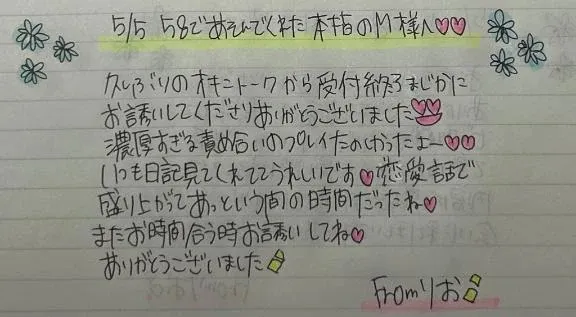 5/5 58であそんでくれた本指のM様へ♡♡
久しぶりのオキニトークから受付終了まじかに
お誘いしてくださりありがとうございました
濃厚すぎる責め合いのプレイたのしかったよー♡♡
いつも日記見てくれててうれしいです♡恋愛話で
盛り上がてあっという間の時間だったね♡
またお時間合う時お誘いしてね♡
ありがとうございました
Fromりお